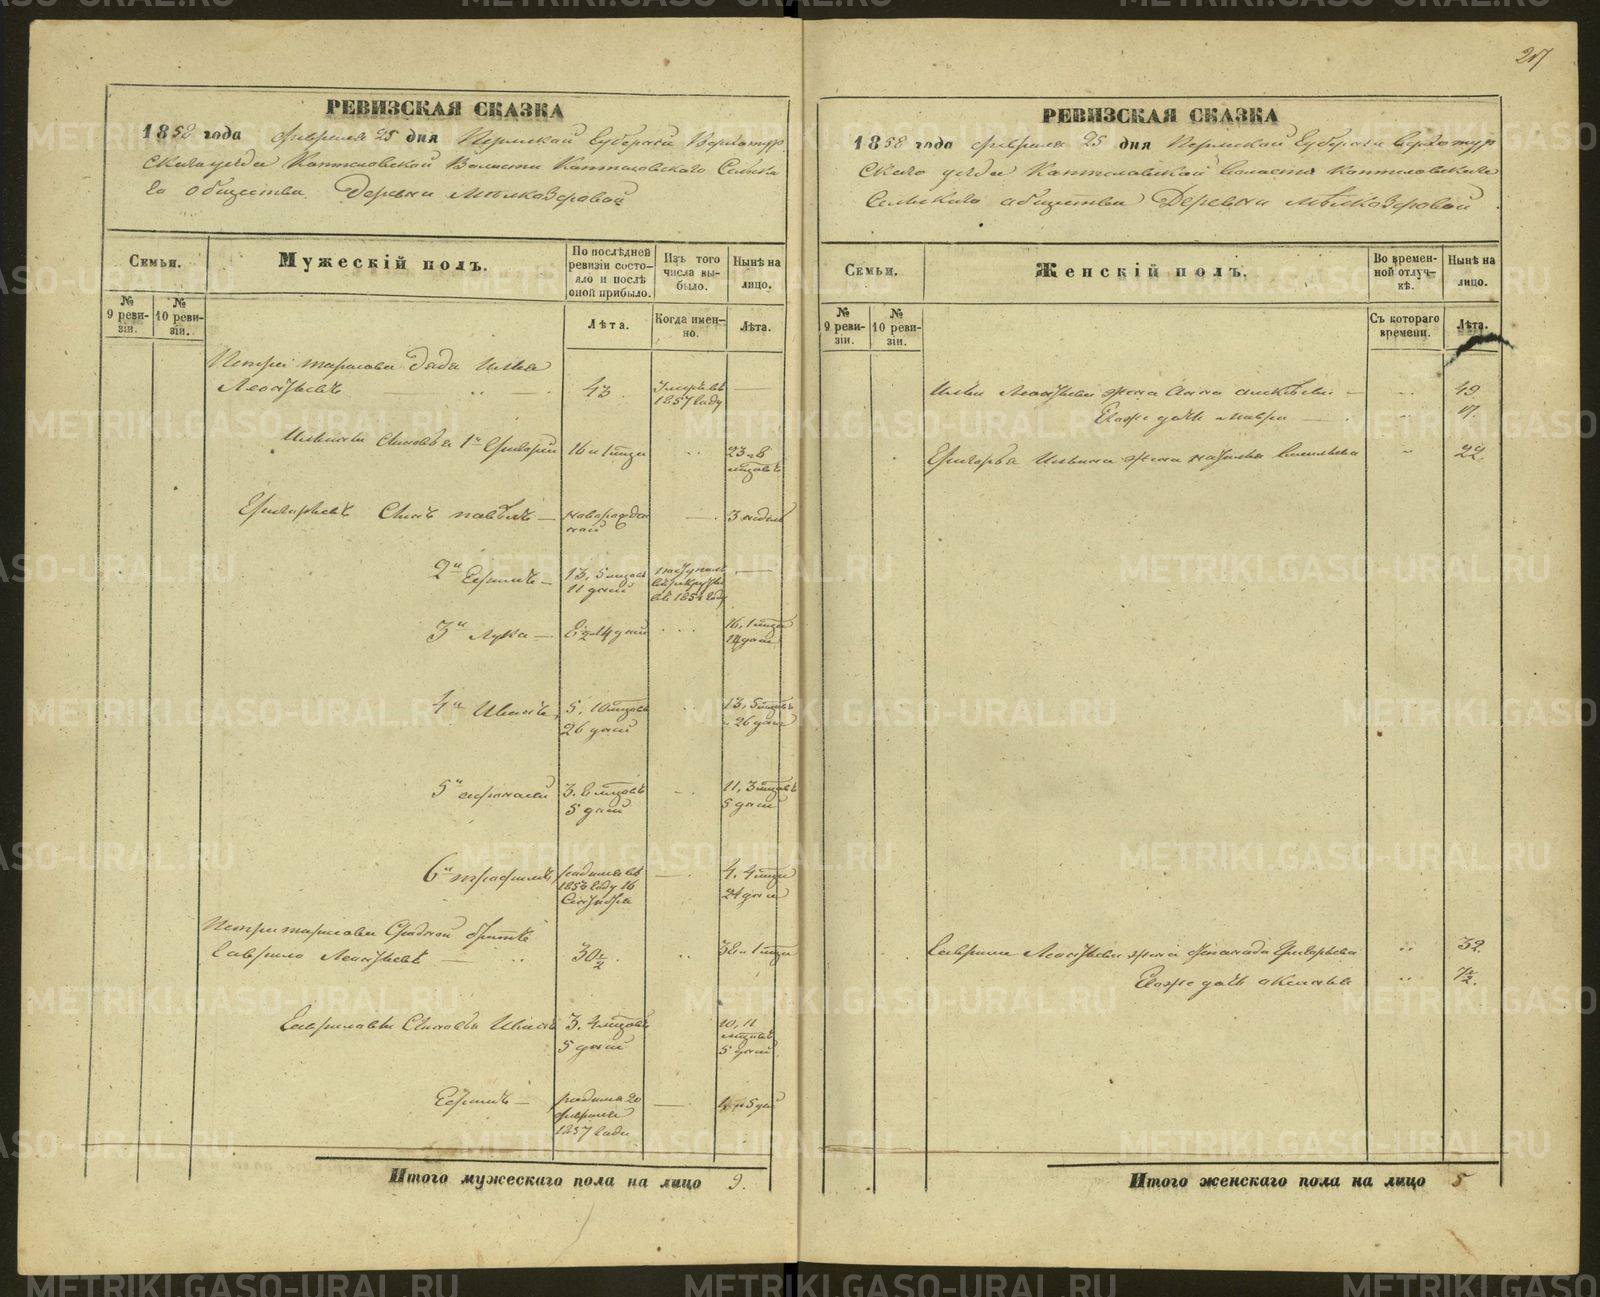 27
РЕВИЗСКАЯ СКАЗКА
1858 года февраля 25 дня Пермской Губернии Верхотур
скаго уезда Коптеловской Волости Коптеловскаго Сельска
го общества Деревни Мѣлкозеровой
Семьи.
Мужескій полъ.
По послѣдней ревизіи состояло и послѣ оной прибыло.
Изъ того числа выбыло.
Нынѣ на лицо.
№ 9 ревизіи.
№ 10 ревизіи.
Лѣта.
Когда именно.
Лѣта.
Петра Тарасова дядя Илья
Леонтьевъ 43 Умеръ въ 1857 году —
Ильины Сыновья 1й Григорий 16 и 1 мца 23 и 8 мцовъ
Григорьевъ Сынъ Павелъ — новорожденный — 3 недели
2й Ефимъ — 13, 5 мцовъ 11 дней поступил в рекруты въ 185 году —
3й Лука — 8½ 14 дней 16, 1 мца 14 дней
4й Иванъ 5. 10 мцовъ 26 дней 13, 5 мцовъ 26 дней
5й Афанасий 3. 8 мцовъ 5 дней 11, 3 мцовъ 5 дней
6й Трофимъ родился въ 1853 году 16 Сентября — 4. 4 мца 24 дня
Петра Тарасова Сродной братъ
Гаврило Леонтьевъ — 30½ 38 и 1 мца
Гавриловы Сыновья Иванъ 3. 4 мцовъ 5 дней 10, 11 мцовъ 5 дней
Ефимъ — родился 20 февраля 1857 года — 1 и 5 дней
Итого мужескаго пола на лицо 9.
РЕВИЗСКАЯ СКАЗКА
1858 года февраля 25 дня Пермской Губернии Верхотур
скаго уезда Коптеловской Волости Коптеловскаго
Сельскаго общества Деревни Мѣлкозеровой
Семьи.
Женскій полъ.
Во временной отлучкѣ.
Нынѣ на лицо.
№ 9 ревизіи.
№ 10 ревизіи.
Съ котораго времени.
Лѣта.
Ильи Леонтьева жена Анна Алексѣева — 49
Ея же дочь Мавра — 17.
Григорья Ильина жена Наталья Савельева 22.
Гаврила Леонтьева жена Григорьева 32
Ея же дочь Аксинья 7½.
Итого женскаго пола на лицо 5
METRIKI.GASO-URAL.RU